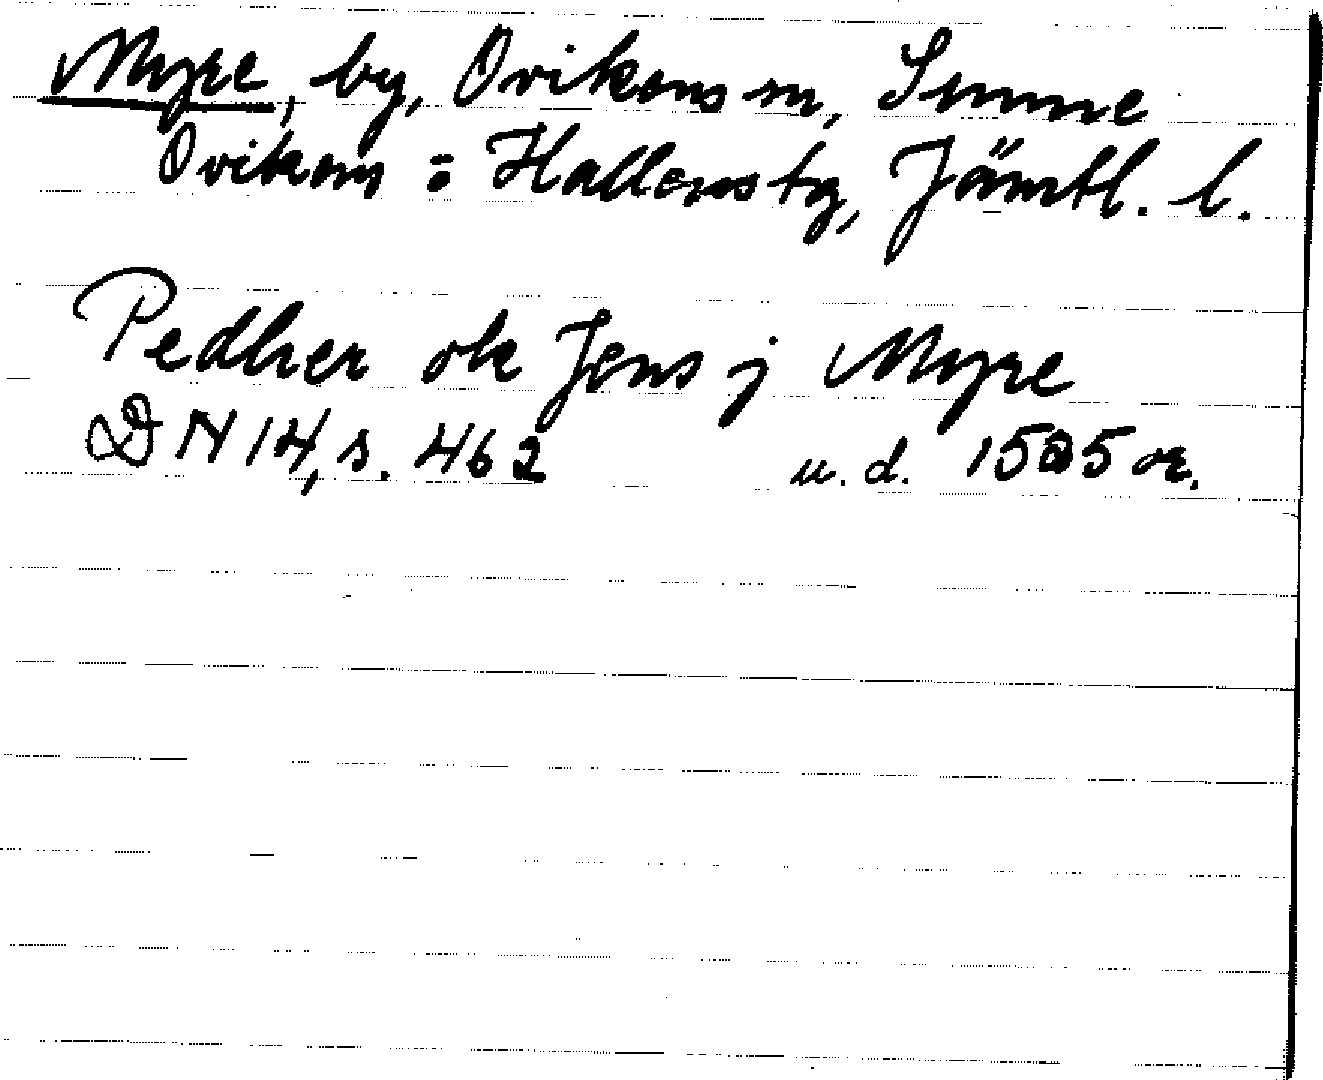 Myre, by, Ovikens sn, Sunne
Ovikens o Hallens tg, Jämtl. l.
Pedher ok Jens j Myre
DN 14, s. 462 u. d. 1505 or.